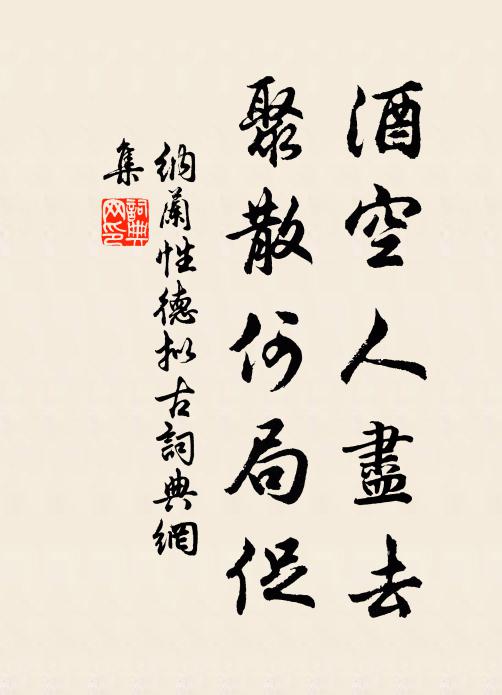 酒空人盡去
聚散何局促
納蘭性德拟古詞典網
集
詞典
网印